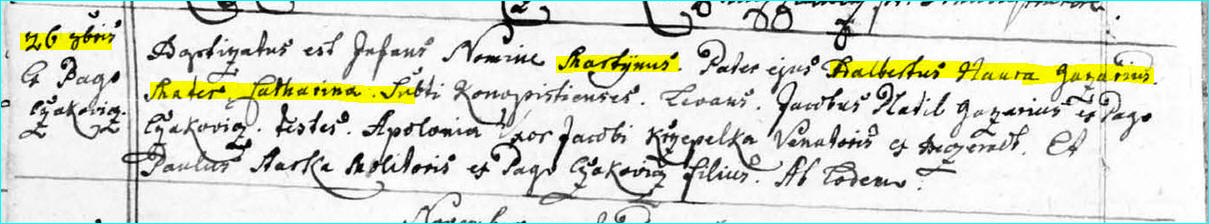 26 9bris
Ex Pago
Czakovicz.
Baptizatus est Infans Nomine Martinus. Pater ejus Adalbertus Kaura Gazarius.
Mater Catharina. Subti Konopistienses. Levans. Jacobus Natil Gazarius ex Pago
Czakovicz. Testes. Apolonia Uxor Jacobi Krzepelka Venatoris ex Beczeradt. Et
Paulus Marka Molitoris ex Pago Czakovicz filius. Ab Eodem.